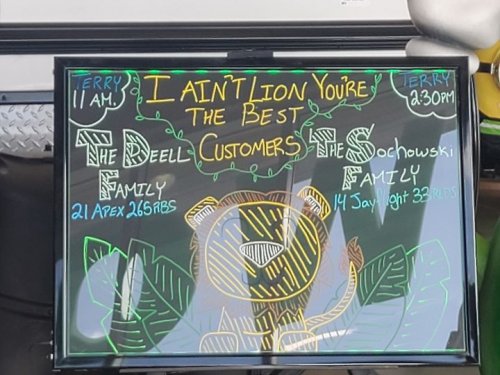 TERRY
11 AM.
I AIN'T LION YOU'RE
THE BEST
CUSTOMERS
TERRY
2:30PM
THE DEELL
FAMILY
21 APEX 265RBS
THE Sochowski
FAMILY
14 Jayflight 33RLDS